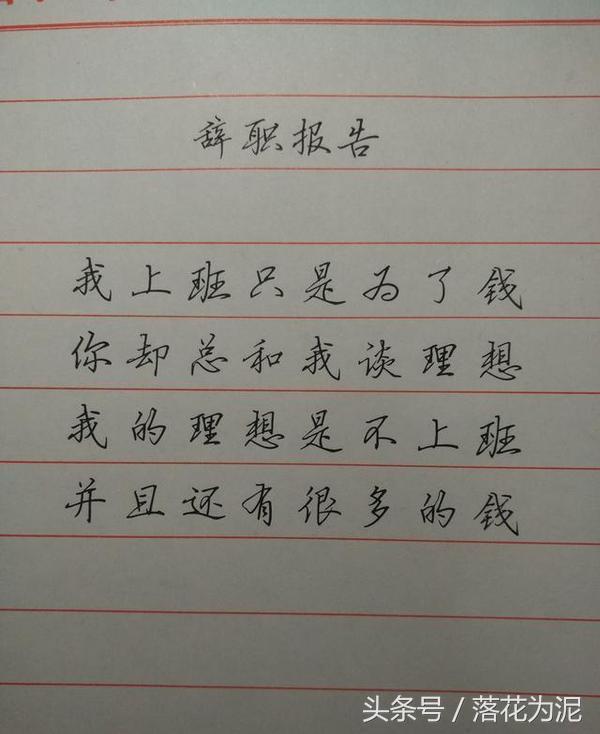 辞职报告
我上班只是为了钱
你却总和我谈理想
我的理想是不上班
并且还有很多的钱
头条号 / 落花为泥